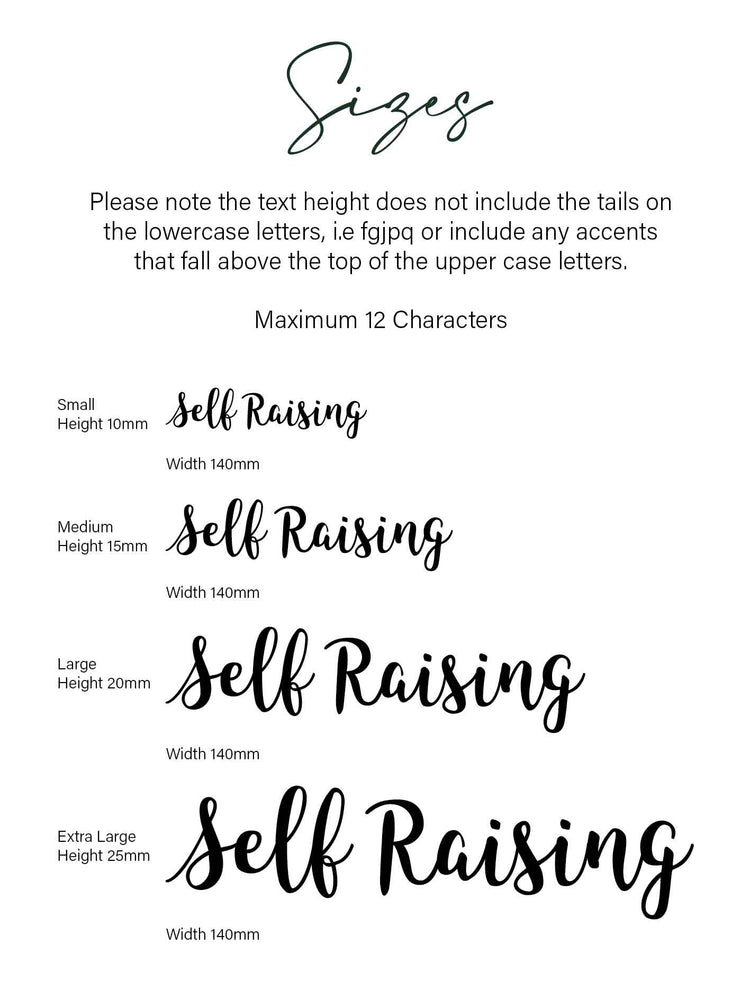 Sizes
Please note the text height does not include the tails on
the lowercase letters, i.e fgjpq or include any accents
that fall above the top of the upper case letters.
Maximum 12 Characters
Small
Height 10mm
Self Raising
Width 140mm
Medium
Height 15mm
Self Raising
Width 140mm
Large
Height 20mm
Self Raising
Width 140mm
Extra Large
Height 25mm
Self Raising
Width 140mm